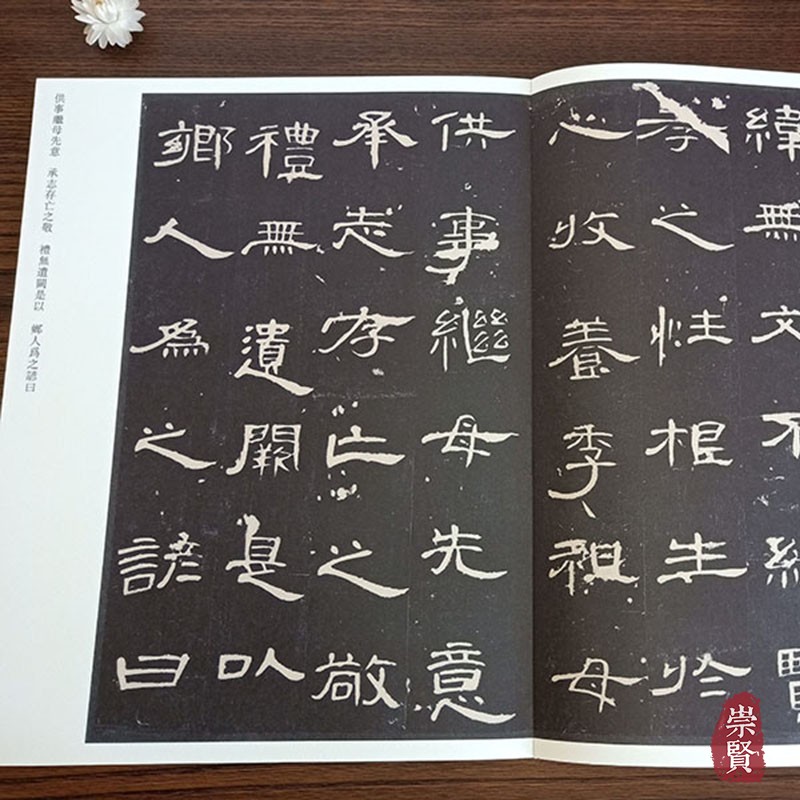 緯無文不綜賢
孝之性根生於
心收養季祖母
供事繼母先意
承志存亡之敬
禮無遺闕是以
鄉人為之諺曰
供事繼母先意 承志存亡之敬 禮無遺闕是以 鄉人爲之諺曰
崇賢